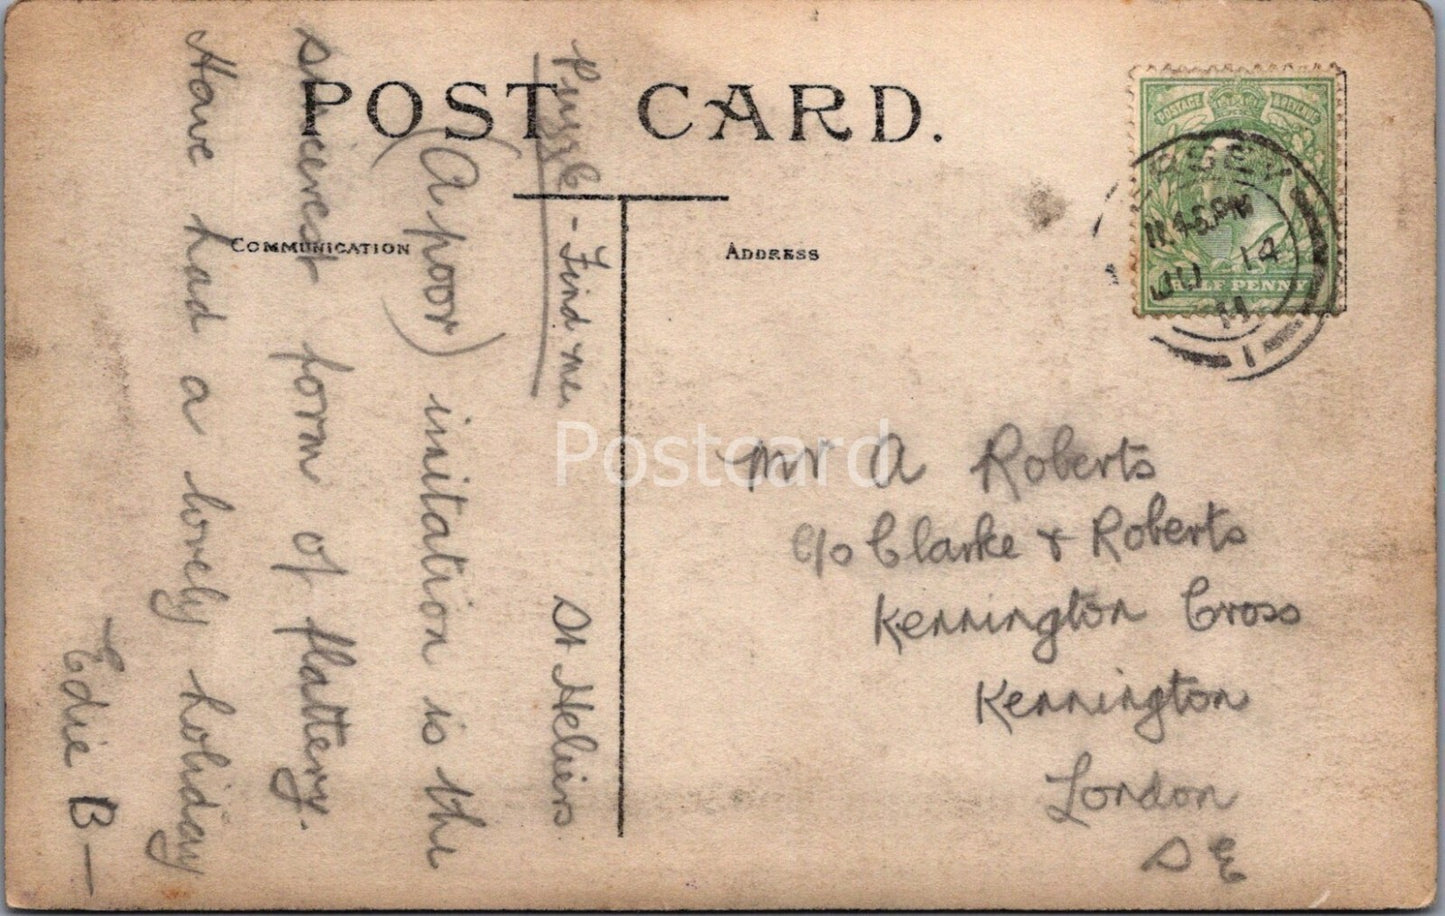 POST CARD.
COMMUNICATION
ADDRESS
Puzzle - Find me.
St Heliers
(A poor) imitation is the
sincerest form of flattery.
Have had a lovely holiday
-Edie B-
Mr A Roberts
c/o Clarke & Roberts
Kennington Cross
Kennington
London
S E
POSTAGE REVENUE
HALF PENNY
JERSEY
JU 14
11
1
Postcard